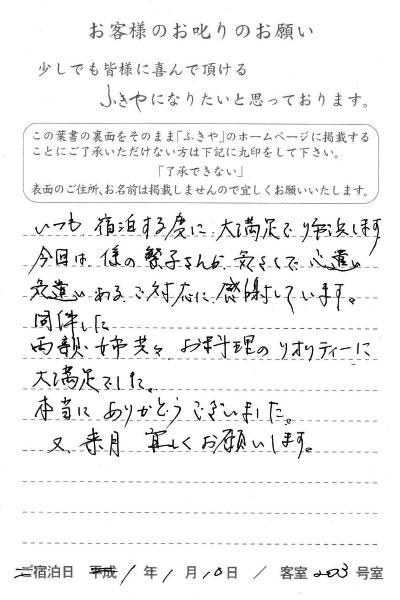 お客様のお叱りのお願い
少しでも皆様に喜んで頂ける
ふきやになりたいと思っております。
この葉書の裏面をそのまま「ふきや」のホームページに掲載する
ことにご了承いただけない方は下記に丸印をして下さい。
「了承できない」
表面のご住所、お名前は掲載しませんので宜しくお願いいたします。
いつも 宿泊する度に 大満足で
今回は、 の 繁子さんが 気さくで 心遣い
気遣いある ご対応に 感謝しています。
同伴した
両親 姉共々 お料理の クオリティーに
大満足でした。
本当に ありがとうございました。
又、来月 宜しくお願いします。
ご宿泊日 平成 1年 1月 10日 / 客室 203 号室